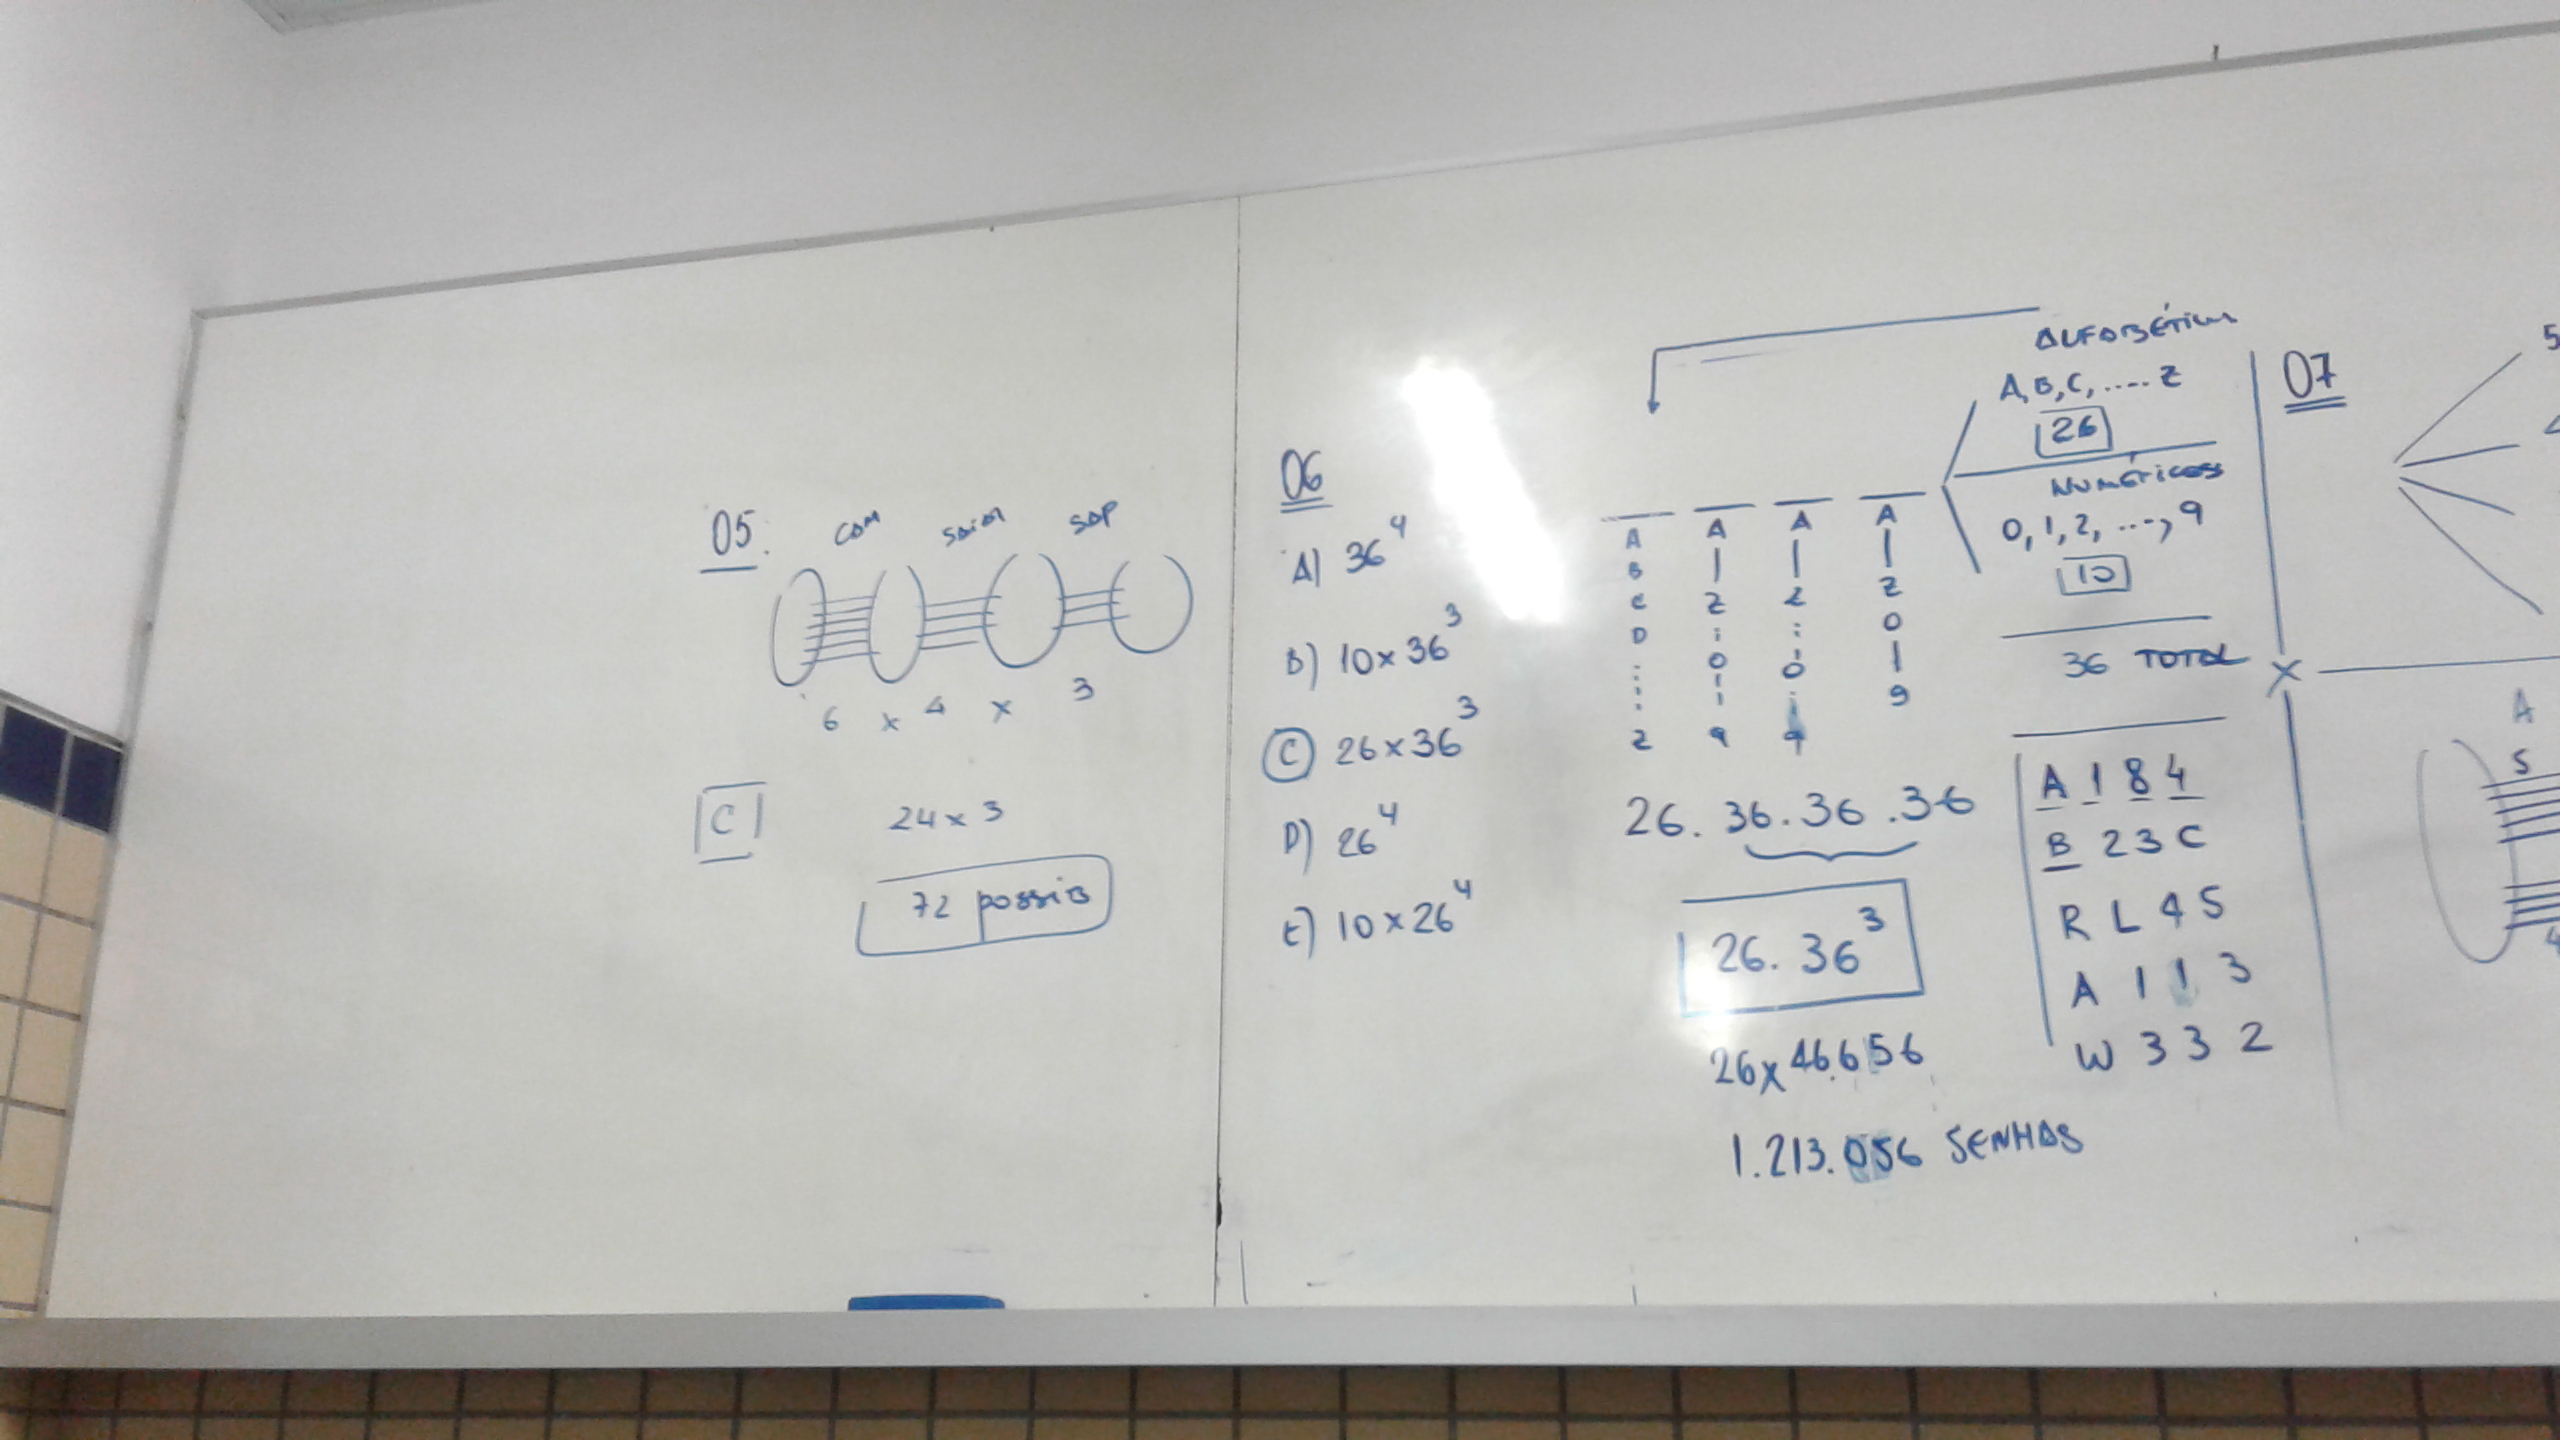 05.
COM SAIA SAP
6 x 4 x 3
C
24 x 3
72 possib
06
A) 36⁴
B) 10 x 36³
C) 26 x 36³
D) 26⁴
E) 10 x 26⁴
A A A A
B | | |
C Z Z Z
D : : 0
: 0 0 |
Z 9 9 9
26 . 36 . 36 . 36
26 . 36³
26 x 46.656
1.213.056 SENHAS
ALFABÉTICA
A, B, C, ..... Z
26
NUMÉRICOS
0, 1, 2, ..., 9
10
36 TOTAL
A 1 8 4
B 2 3 C
R L 4 5
A 1 1 3
W 3 3 2
07
5
X
A
5
4